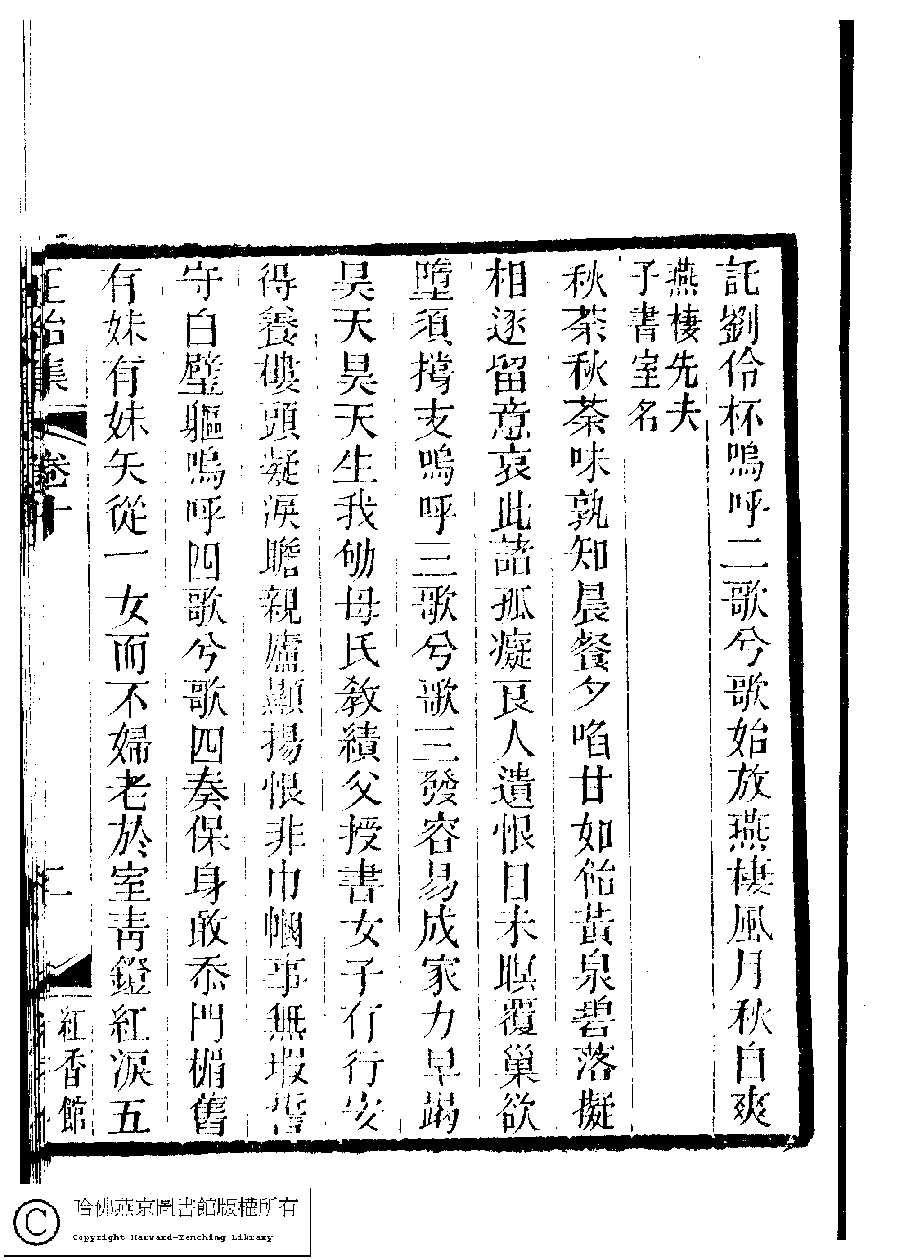 託劉伶杯嗚呼二歌兮歌始放燕棲風月秋自爽
燕棲先夫
子書室名
秋荼秋荼味孰知晨餐夕啗甘如飴黃泉碧落擬
相逐留意哀此諸孤癡良人遺恨目未瞑覆巢欲
墮須撐支嗚呼三歌兮歌三發容易成家力早竭
昊天昊天生我劬母氏敎績父授書女子有行安
得養樓頭凝淚瞻親廬顯揚恨非巾幗事無瑕誓
守白璧軀嗚呼四歌兮歌四奏保身敢忝門楣舊
有妹有妹矢從一女而不婦老於室靑鐙紅淚五
正始集
卷十
二
紅香館
哈佛燕京圖書館版權所有
Copyright Harvard-Yenching Library